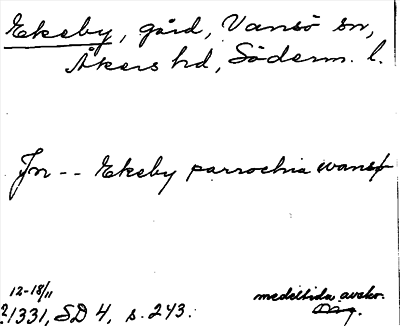 Ekeby, gård, Vansö sn,
Åkers hd, Söderm. l.
Jn -- Ekeby parrochia wansø
12-18/11
?1331, SD 4, s. 243.
medeltida avskr.